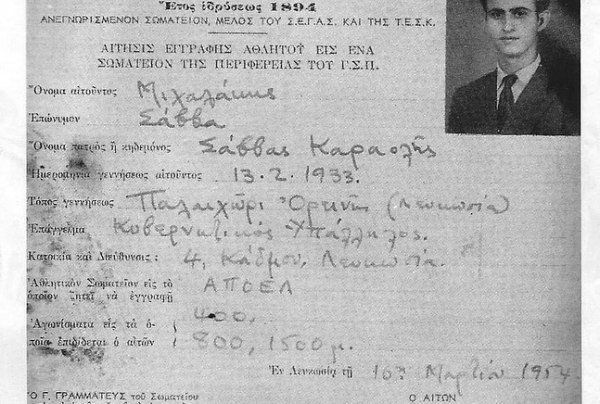 Ἔτος ἱδρύσεως 1894
ΑΝΕΓΝΩΡΙΣΜΕΝΟΝ ΣΩΜΑΤΕΙΟΝ, ΜΕΛΟΣ ΤΟΥ Σ.Ε.Γ.Α.Σ. ΚΑΙ ΤΗΣ Τ.Ε.Σ.Κ.
ΑΙΤΗΣΙΣ ΕΓΓΡΑΦΗΣ ΑΘΛΗΤΟΥ ΕΙΣ ΕΝΑ
ΣΩΜΑΤΕΙΟΝ ΤΗΣ ΠΕΡΙΦΕΡΕΙΑΣ ΤΟΥ Γ.Σ.Π.
Ὄνομα αἰτοῦντος Μιχαλάκης
Ἐπώνυμον Σάββα
Ὄνομα πατρὸς ἢ κηδεμόνος Σάββας Καραολῆς
Ἡμερομηνία γεννήσεως αἰτοῦντος 13.2.1933.
Τόπος γεννήσεως Παλαιχώρι Ὀρεινῆς (Λευκωσία)
Ἐπάγγελμα Κυβερνητικός Ὑπάλληλος.
Κατοικία καὶ Διεύθυνσις : 4, Κάδμου, Λευκωσία.
Ἀθλητικὸν Σωματεῖον εἰς τὸ
ὁποῖον ζητεῖ νὰ ἐγγραφῇ ΑΠΟΕΛ
Ἀγωνίσματα εἰς τὰ ὁ- 400,
ποῖα ἐπιδίδεται ὁ αἰτῶν 800, 1500 μ.
Ἐν Λευκωσίᾳ τῇ 16ῃ Μαρτίου 1954
Ὁ Γ. ΓΡΑΜΜΑΤΕΥΣ τοῦ Σωματείου Ο ΑΙΤΩΝ